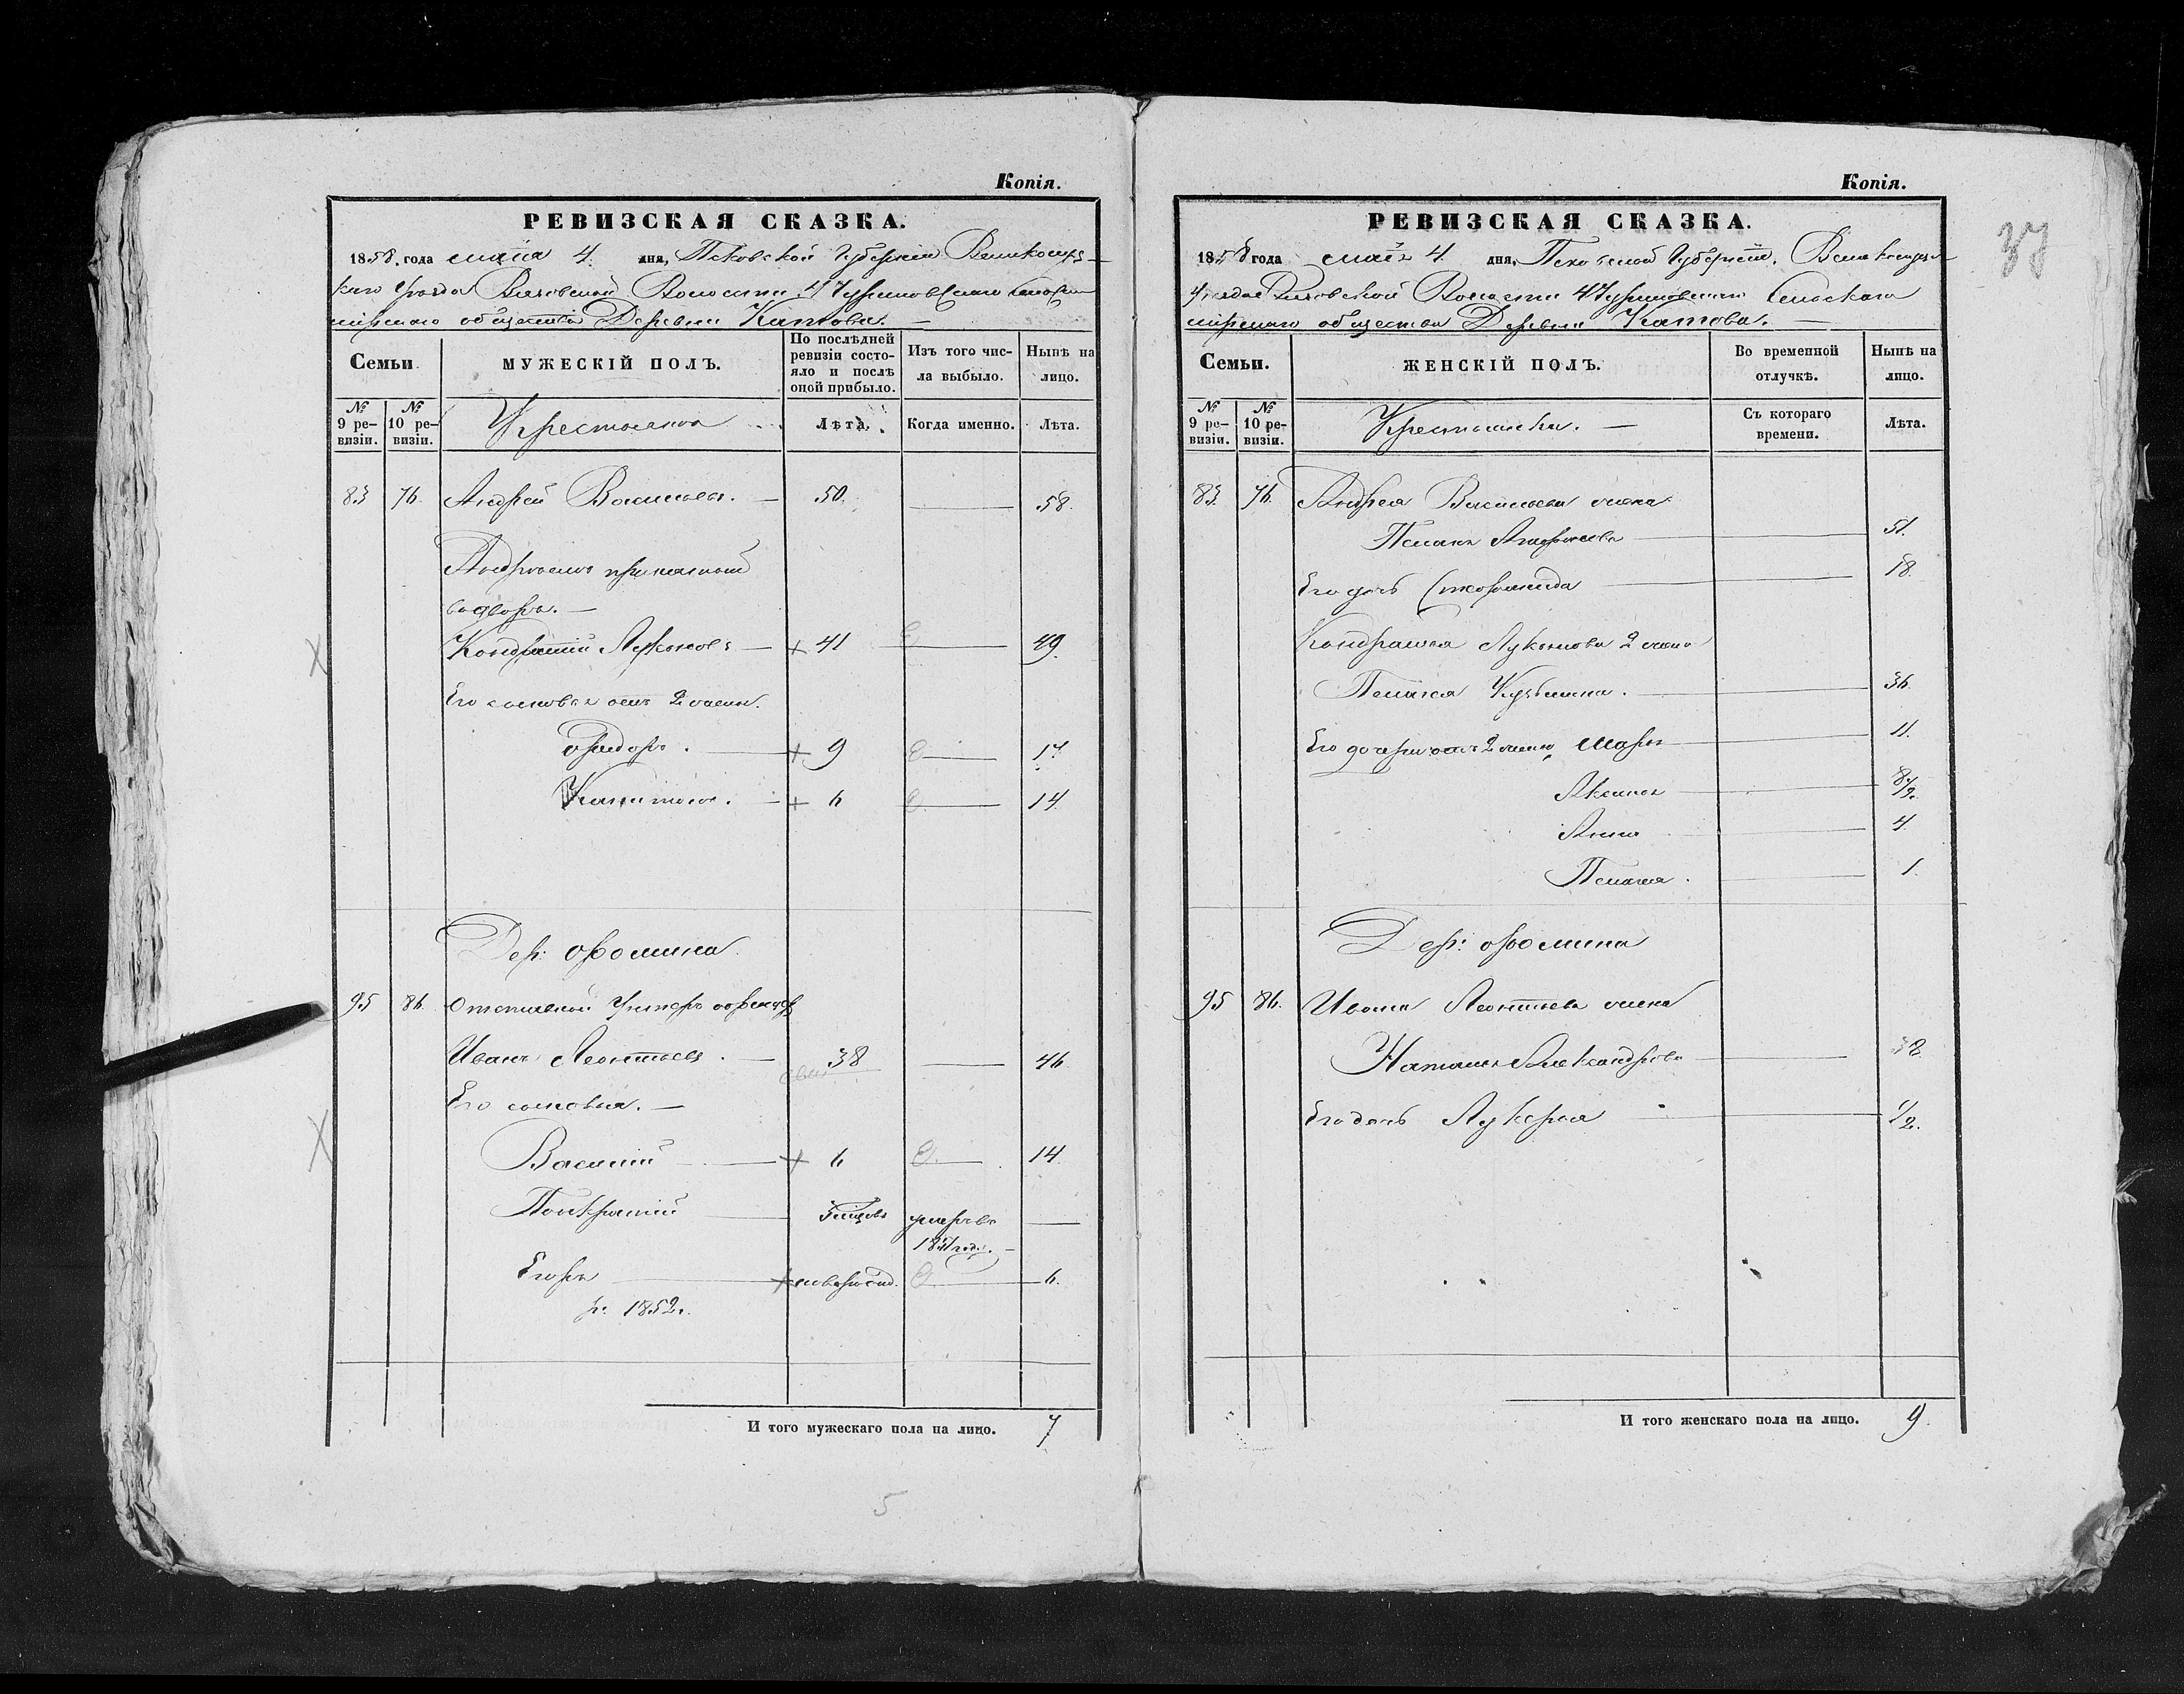 Копія.
РЕВИЗСКАЯ СКАЗКА.
1858 года маія 4 дня, Псковской Губерніи Великолуц-
каго Уѣзда Вязовской Волости
мірскаго общества Деревни Катова.
Семьи.
МУЖЕСКІЙ ПОЛЪ.
По послѣдней ревизіи состояло и послѣ оной прибыло.
Изъ того числа выбыло.
Нынѣ на лицо.
№ 9 ревизіи.
№ 10 ревизіи.
Крестьяне
Лѣта.
Когда именно.
Лѣта.
83 76. Андрей Васильевъ. — 50. — 58.
Андреемъ приказной
во дворъ. —
Кондратій Лукьяновъ — + 41 — 49
Его сыновья отъ 2 жены.
Ѳедоръ. — + 9 — 17
Капитонъ. — + 6 — 14
Дер: Ѳомина
95 86. Отставной Унтеръ офицеръ
Иванъ Леонтьевъ. — 38 — 46
Его сыновья. —
Василій — + 6 — 14
Понкратій — умеръ въ —
Егоръ — + новорожд. — 6.
р. 1852 г.
И того мужескаго пола на лицо. 7
5
Копія.
37
РЕВИЗСКАЯ СКАЗКА.
1858 года маія 4 дня, Псковской Губерніи, Великолуцкаго
Уѣзда Вязовской Волости Сельскаго
мірскаго общества Деревни Катова. —
Семьи.
ЖЕНСКІЙ ПОЛЪ.
Во временной отлучкѣ.
Нынѣ на лицо.
№ 9 ревизіи.
№ 10 ревизіи.
Крестьянки. —
Съ котораго времени.
Лѣта.
83. 76. Андрея Васильева жена
— 51.
Его дочь — 18.
Кондратья Лукьянова 2 жена
Пелагея Кузьмина. — 36
Его дочери отъ 2 жены, Марья — 11.
Аксинья — 8 1/2.
Анна — 4.
Пелагея. — 1.
Дер: Ѳомина
95 86. Ивана Леонтьева жена
Наталья Александрова — 32
Его дочь Лукерья — 1/2.
И того женскаго пола на лицо. 9.